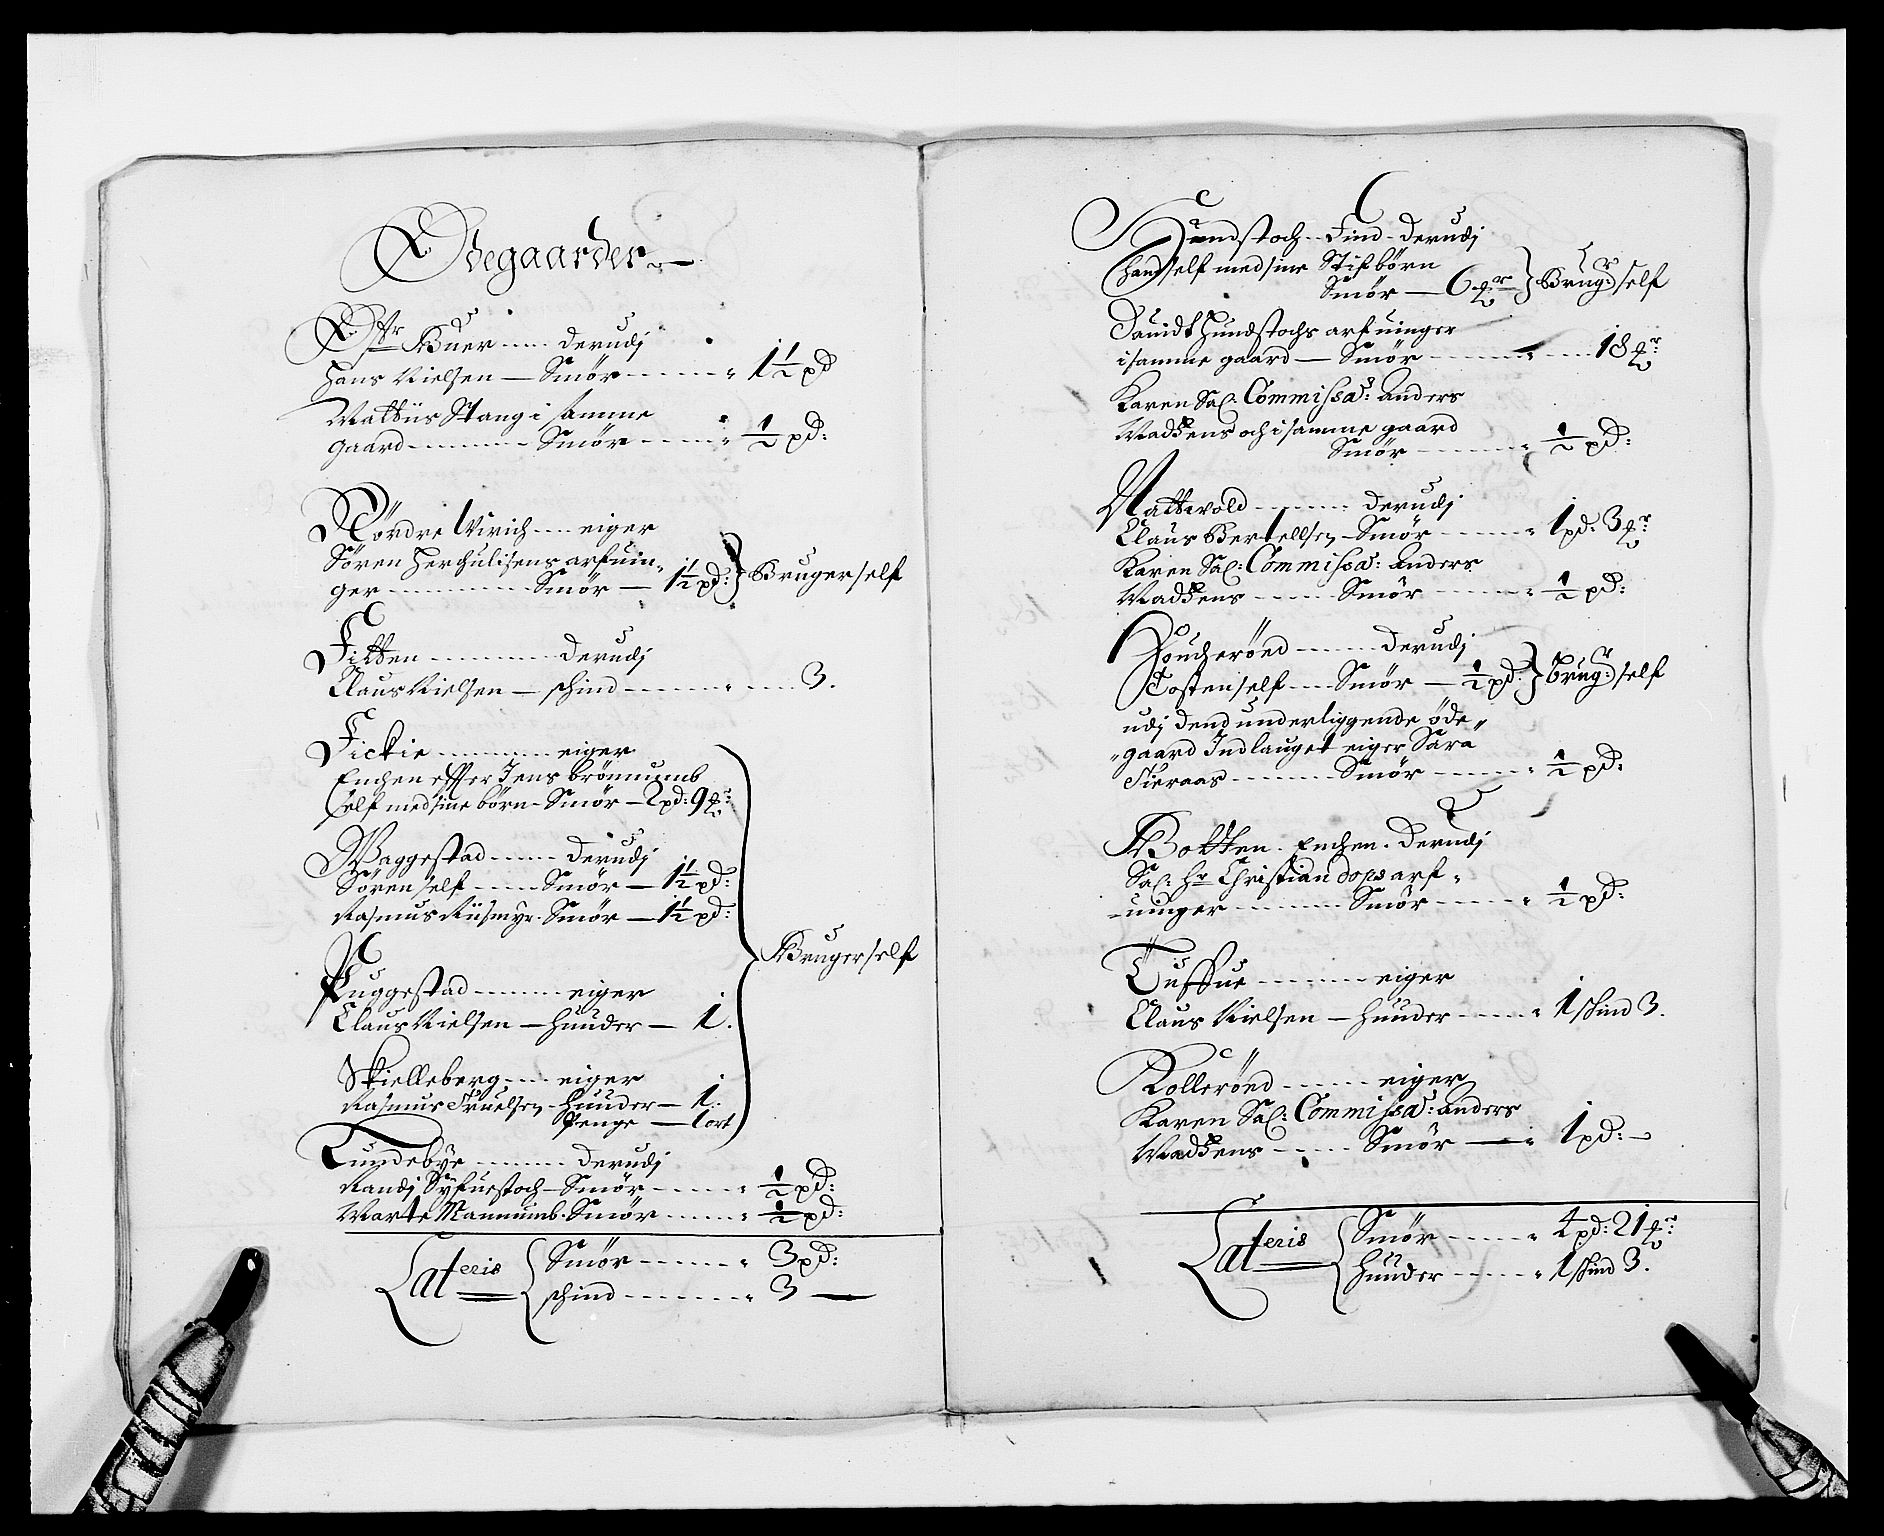 Ødegaarder
Østr Buer ..... derudj
Hans Nielsen — Smör ........ 1½ pd
Mattiis Stang i samme
gaard ........ Smör ...... ½ pd:
Nördre Wirich .... eiger
Sören Herchulisens arfuin-
ger ........ Smör — 1½ pd: } Bruger self
Fitten ........ derudj
Claus Nielsen — schind ........ 3.
Fickie ........ eiger
Enchen effter Jens brömumb
self med sine börn - Smör — 2 pd: 9 
Waggestad ..... derudj
Sören self ..... Smör — 1½ pd:
Rasmus Riismyr. Smör — 1½ pd:
Puggestad ....... eiger
Claus Nielsen — huuder — 1.
Bruger self
Skielleberg .... eiger
Rasmus Truelsen - huuder — 1.
Penge — 1 ort
Tundebye ...... derudj
Randj Syfuestoch - Smör ...... ½ pd:
Marte Mannumb. Smör ...... ½ pd:
Lateris { Smör ....... 3 pd:
schind ........ 3 —
Hundstoch - Find - derudj
hand self med sine Stifbörn
Smör — 6  } Brugr: self
Dauidt Hundstochs arfuinger
i samme gaard — Smör ........ 18 
Karen Sal. Commissa: Anders
Madsens och i samme gaard
Smör ...... ½ pd:
Nattwold ....... derudj
Claus Bertellsen - Smör ...... 1 pd: 3 
Karen Sal: Commissa: Anders
Madsens ..... Smör ...... ½ pd:
Foucherönd ...... derudj
Tosten self .... Smör — ½ pd: } brugr: self
udj dend underliggende öde-
gaard Indlauget eiger Sara
Fieraas ....... Smör ...... ½ pd:
Botten. Enchen. derudj
Sal: Hr Christian dops arf-
uinger ....... Smör ...... ½ pd:
Tuffue ....... eiger
Claus Nielsen — huuder ..... 1 schind 3.
Kollerönd ...... eiger
Karen Sal: Commissa: Anders
Madsens ..... Smör — 1 pd: -
Lateris { Smör ..... 4 pd: 21 
huuder ..... 1 schind 3.